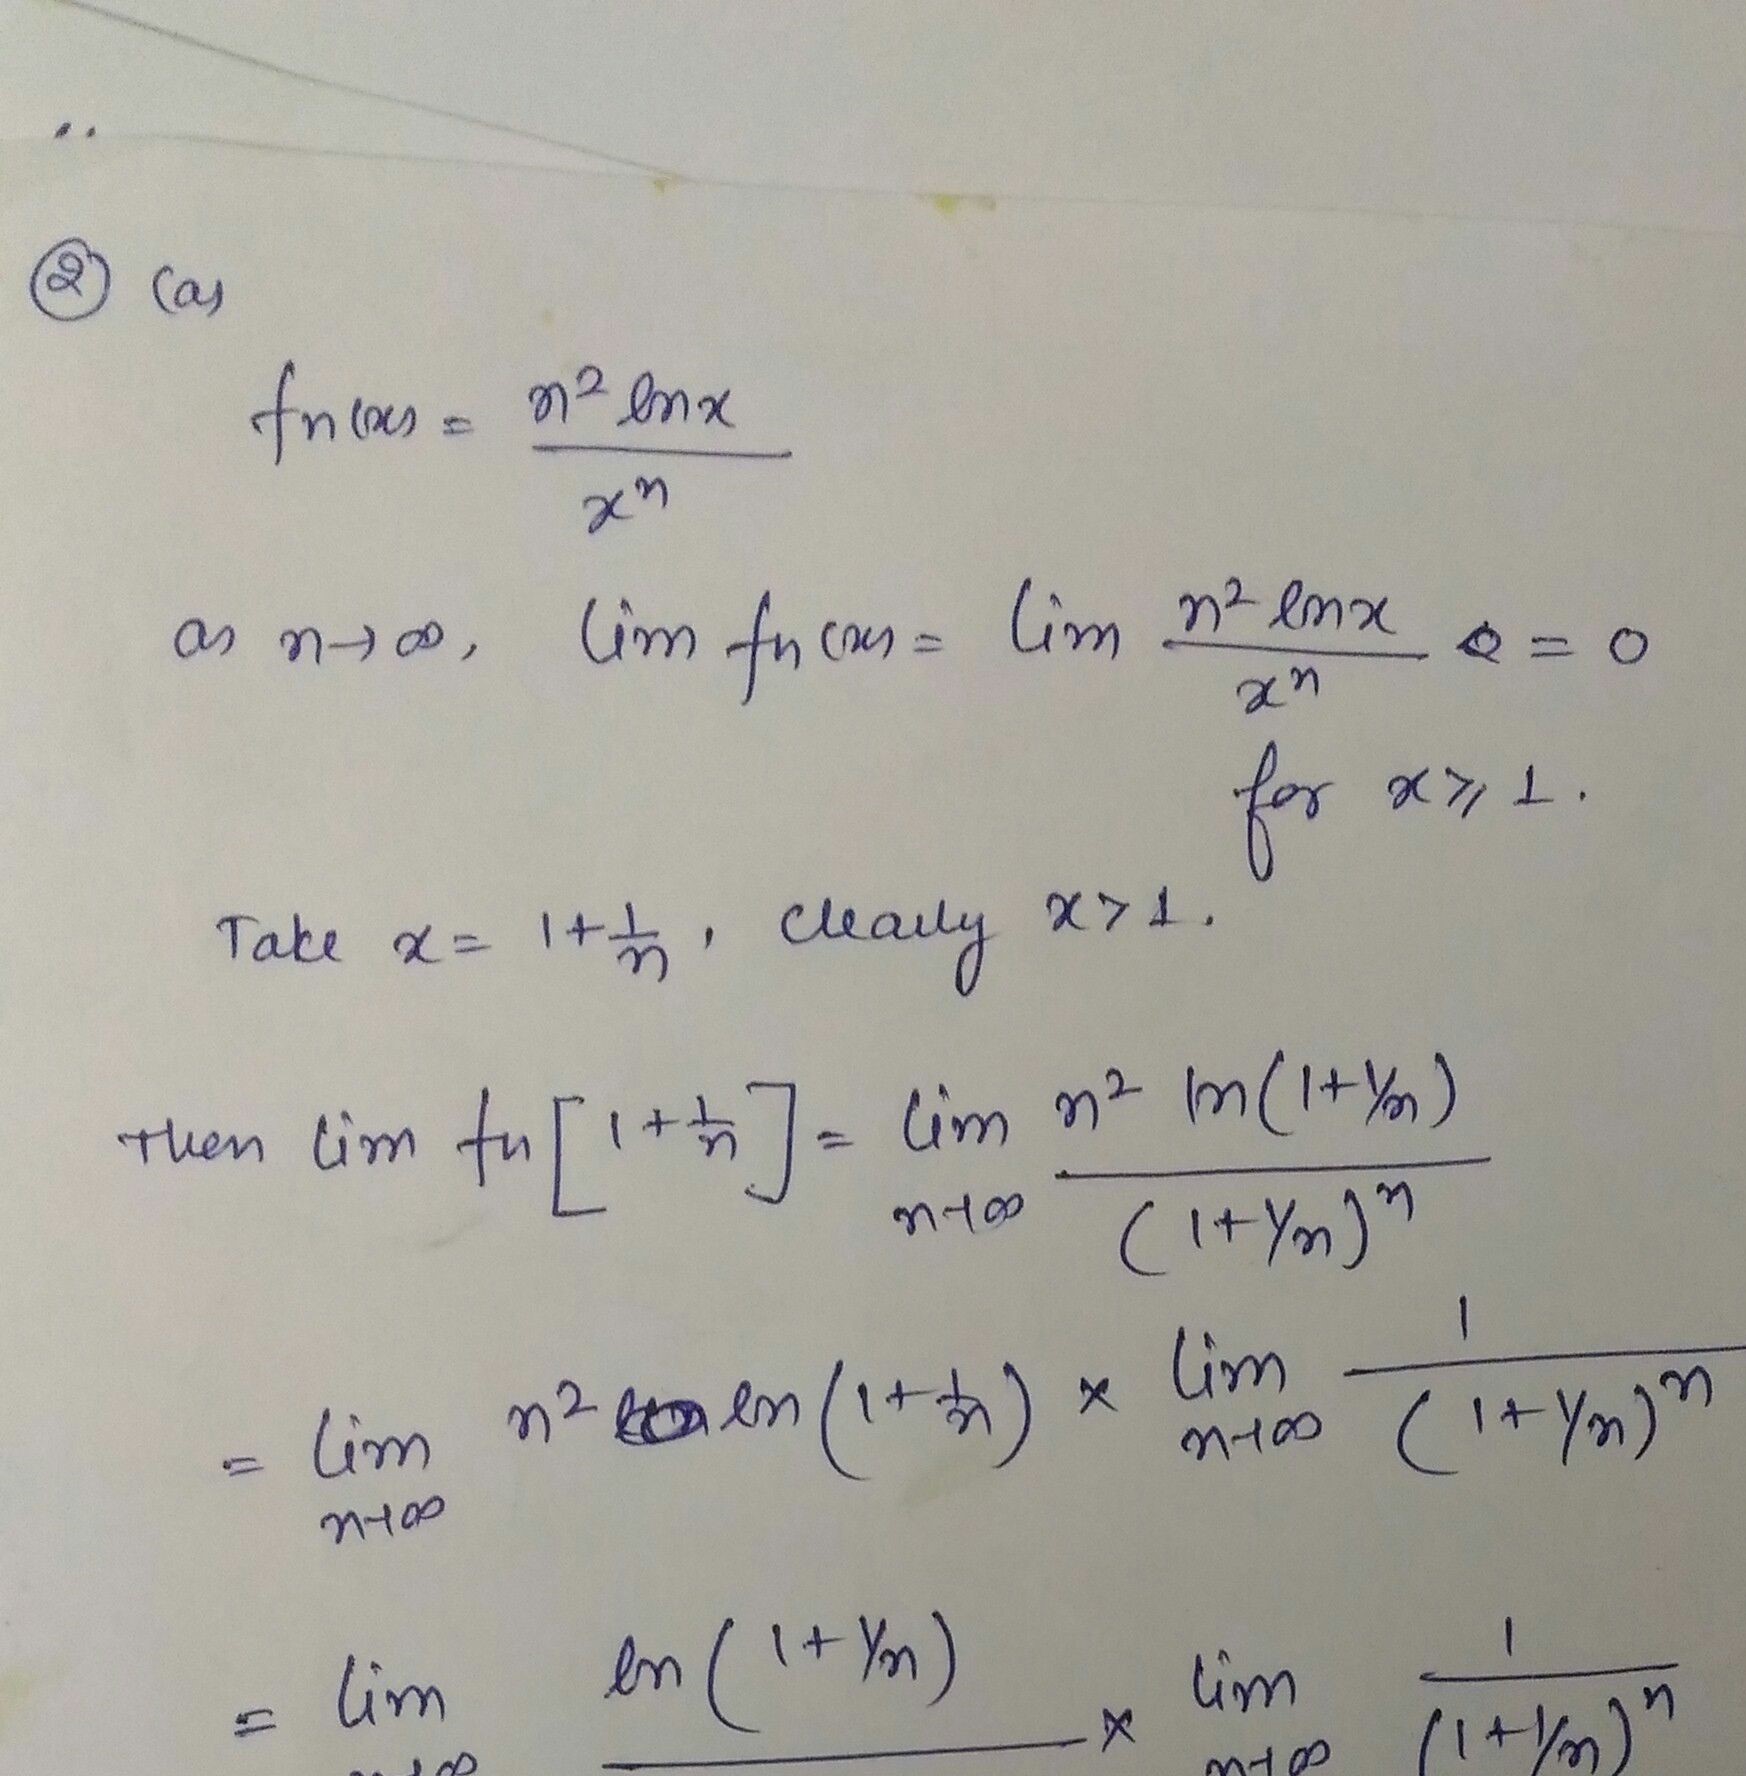 ② (a)
fn(x) = n² ln x / xⁿ
as n→∞, lim fn(x) = lim n² ln x / xⁿ = 0
for x ⩾ 1.
Take x = 1 + 1/n, clearly x > 1.
Then lim fn [1 + 1/n] = lim n→∞ n² ln(1 + 1/n) / (1 + 1/n)ⁿ
= lim n→∞ n² ln(1 + 1/n) × lim n→∞ 1 / (1 + 1/n)ⁿ
= lim n→∞ ln(1 + 1/n) × lim n→∞ 1 / (1 + 1/n)ⁿ